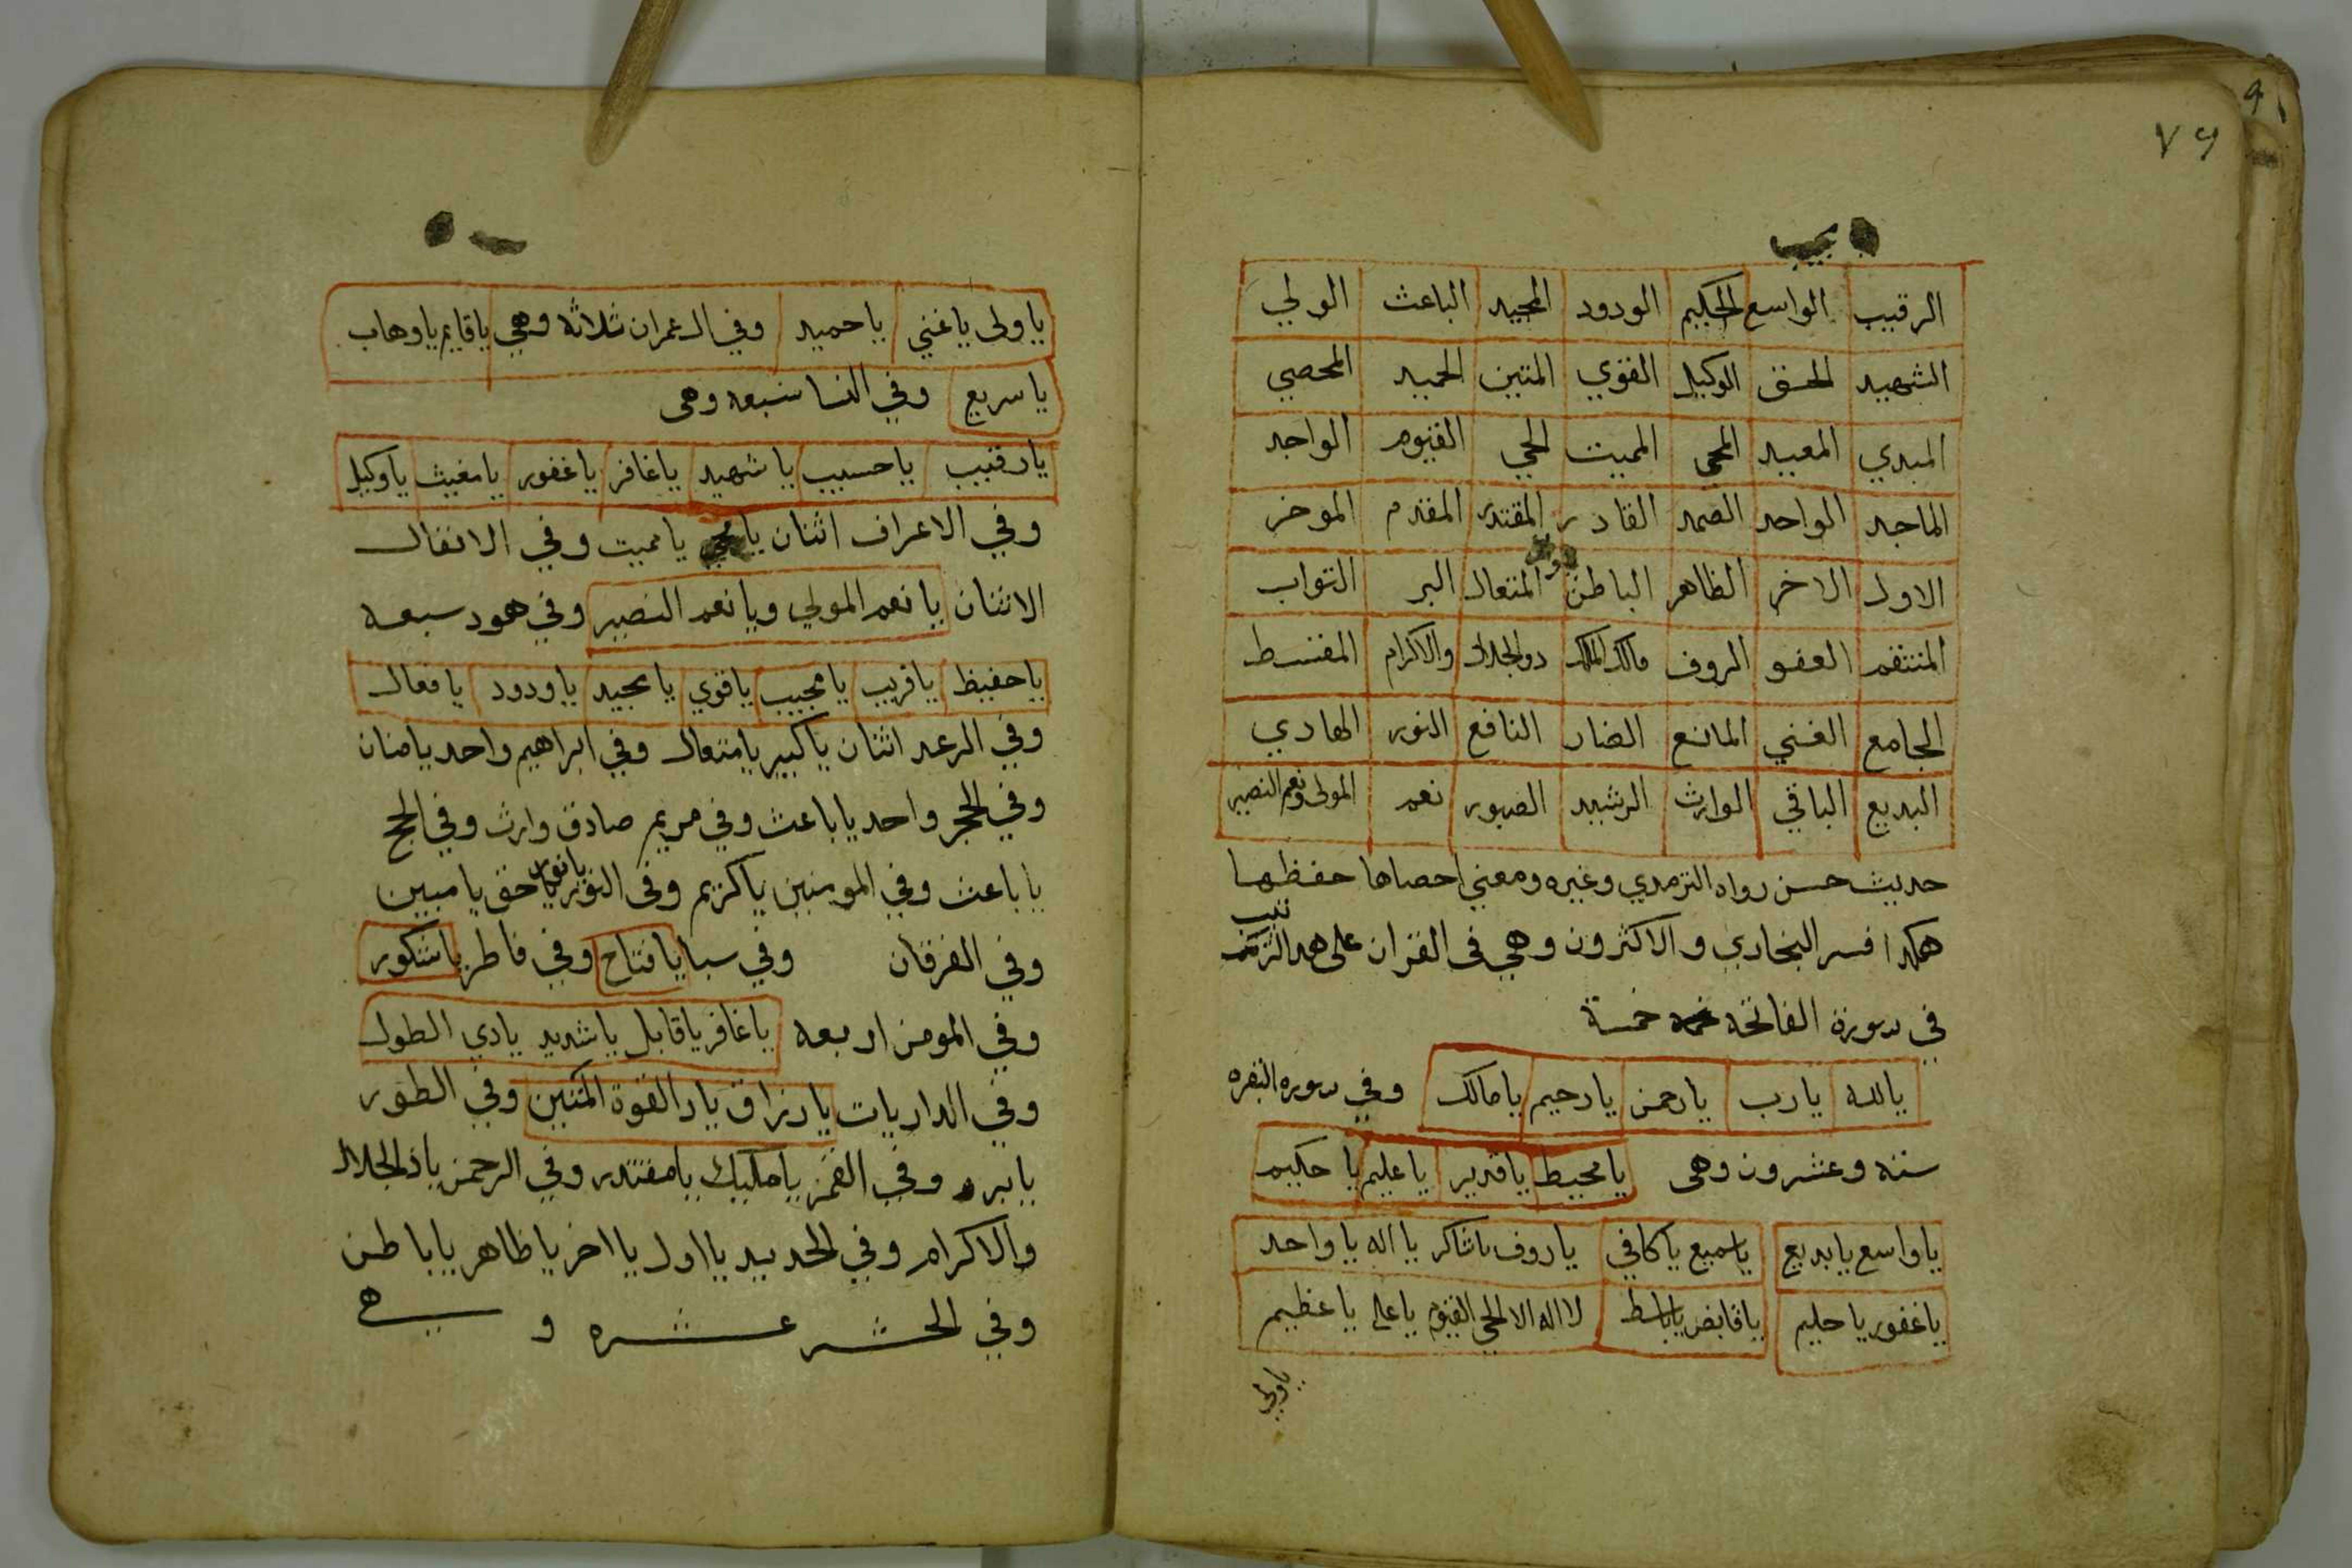 ٧٩
الرقيب الواسع الحكيم الودود المجيد الباعث الولي
الشهيد الحق الوكيل القوي المتين الحميد المحصي
المبدي المعيد المحي المميت الحي القيوم الواجد
الماجد الواحد الصمد القادر المقتدر المقدم الموخر
الاول الاخر الظاهر الباطن المتعال البر التواب
المنتقم العفو الروف مالك الملك دو الجلال والاكرام المقسط
الجامع الغني المانع الضار النافع النور الهادي
البديع الباقي الوارث الرشيد الصبور نعم المولى ونعم النصير
حديث حسن رواه الترمدي وغيره ومعني احصاها حفظها
هكدا فسر البخاري والاكثرون وهي في القران على هدا الترتيب
في سورة الفاتحة خمسة
يالله يارب يارحمن يارحيم يامالك وفي سوره البقره
سته وعشرون وهى يامحيط ياقدير ياعليم يا حكيم
ياواسع يابديع ياسميع ياكافي ياروف ياشاكر يااله ياواحد
ياغفور ياحليم ياقابض ياباسط لااله الا الحي القيوم ياعلى ياعظيم
ياولي
ياولى ياغني ياحميد وفي ال عمران ثلاثه وهي ياقايم ياوهاب
ياسريع وفي النسا سبعه وهى
يارقيب ياحسيب ياشهيد ياغافر ياغفور يامغيث ياوكيل
وفي الاعراف اثنان يامحي يامميت وفي الانفال
الاثنان يانعم المولي ويانعم النصير وفي هود سبعه
ياحفيظ ياقريب يامجيب ياقوي يامجيد ياودود يافعال
وفي الرعد اثنان ياكبير يامتعال وفي ابراهيم واحد يامنان
وفي الحجر واحد ياباعث وفي مريم صادق وارث وفي الحج
ياباعث وفي المومنين ياكريم وفى النور يانور ياحق يامبين
وفي الفرقان وفي سبا يافتاح وفي فاطر ياشكور
وفي المومن اربعه ياغافر ياقابل ياشديد يادي الطول
وفي الداريات يارزاق ياذا القوة المتين وفي الطور
يابر وفي القمر يامليك يامقتدر وفي الرحمن ياذا لجلال
والاكرام وفي الحديد يااول يااخر ياظاهر ياباطن
وفي الحشر عشره وهي